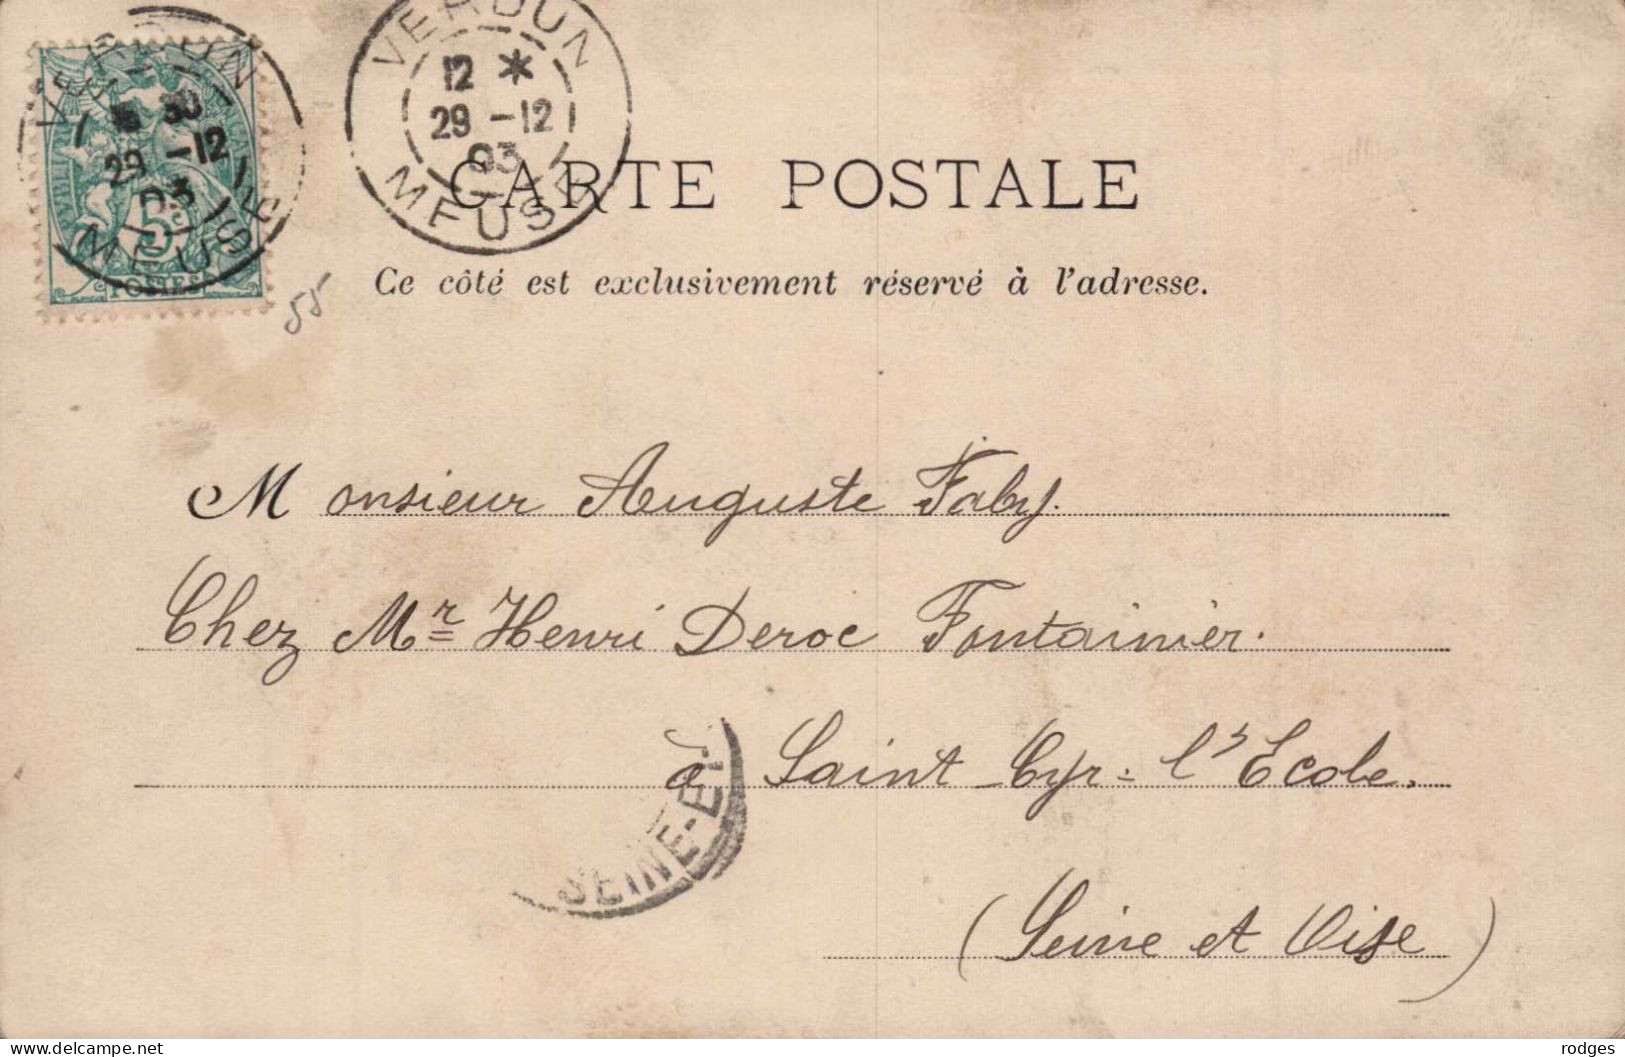 VERDUN
12 *
29 -12
03
MEUSE
VERDUN
30
29 -12
03
MEUSE
5c
POSTES
55
CARTE POSTALE
Ce côté est exclusivement réservé à l'adresse.
Monsieur Auguste Faby.
Chez Mr Henri Deroc Fontainier.
à Saint-Cyr-l'Ecole.
SEINE-ET-
(Seine et Oise)
delcampe.net
rodges